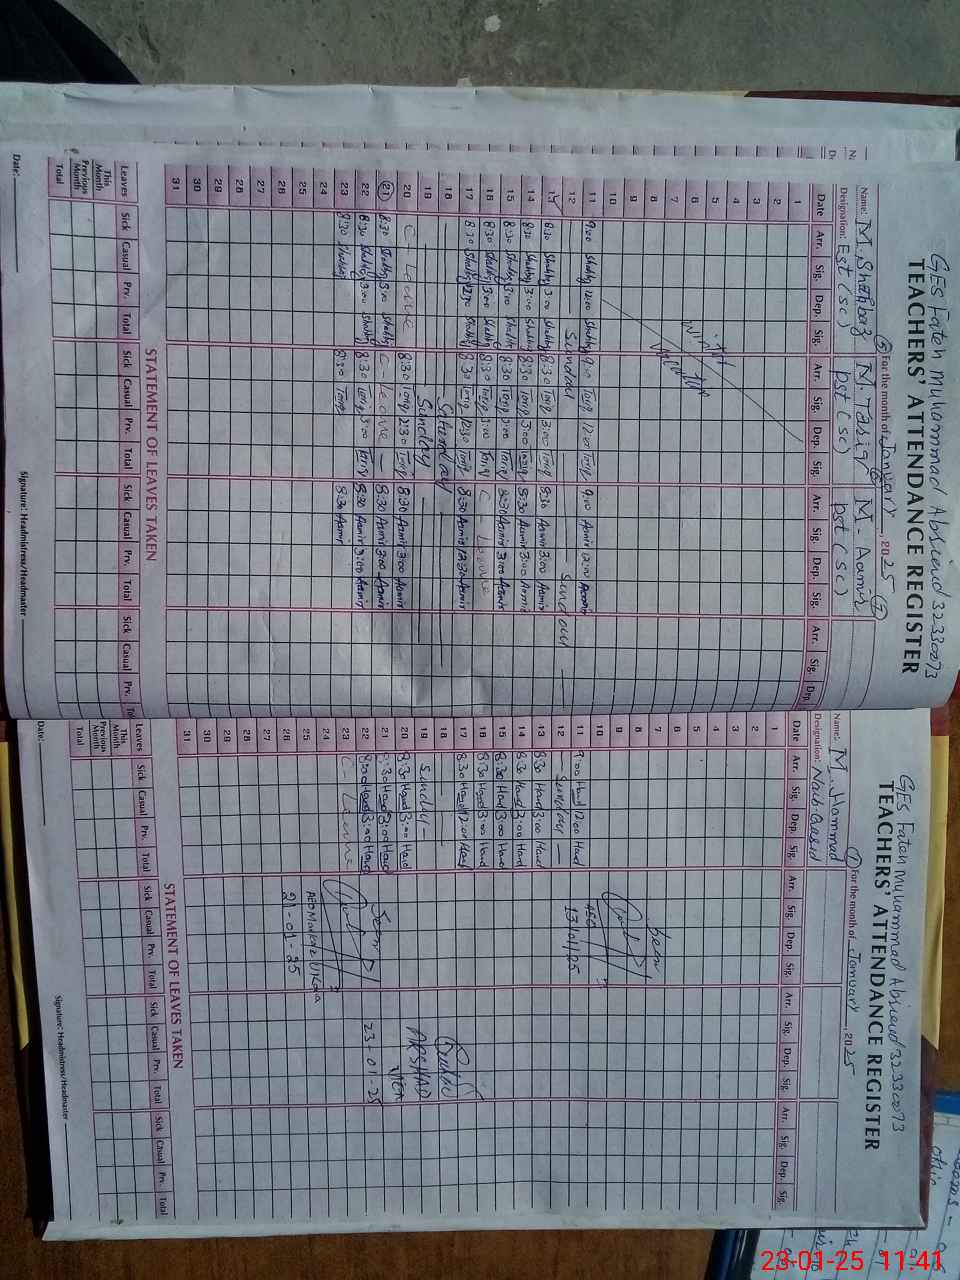 GES Fateh Muhammad Absiend 32330073
TEACHERS' ATTENDANCE REGISTER
⑤ For the month of January ⑥, 2025 ⑦
Name: M. Shahbaz M. Tariq M. Aamir
Designation: Est (sc) pst (sc) pst (sc)
Date Arr. Sig. Dep. Sig. Arr. Sig. Dep. Sig. Arr. Sig. Dep. Sig. Arr. Sig. Dep.
1
2
3
4
5
6
7
8
9
10
11 9:00 Shahbz 12:00 Shahbz 9:00 Tariq 12:00 Tariq 9:00 Aamir 12:00 Aamir
12 — Sunday — Sunday —
13 8:30 Shahbz 3:00 Shahbz 8:30 Tariq 3:00 Tariq 8:30 Aamir 3:00 Aamir
14 8:30 Shahbz 3:00 Shahbz 8:30 Tariq 3:00 Tariq 8:30 Aamir 3:00 Aamir
15 8:30 Shahbz 3:00 Shahbz 8:30 Tariq 3:00 Tariq 8:30 Aamir 3:00 Aamir
16 8:30 Shahbz 3:00 Shahbz 8:30 Tariq 3:00 Tariq C - Leave
17 8:30 Shahbz 12:30 Shahbz 8:30 Tariq 12:30 Tariq 8:30 Aamir 12:30 Aamir
18 Saturday
19 Sunday
20 C - Leave 8:30 Tariq 2:30 Tariq 8:30 Aamir 3:00 Aamir
21 8:30 Shahbz 3:00 Shahbz C - Leave — 8:30 Aamir 3:00 Aamir
22 8:30 Shahbz 3:00 Shahbz 8:30 Tariq 3:00 Tariq 8:30 Aamir 3:00 Aamir
23 8:30 Shahbz 8:30 Tariq 8:30 Aamir
24
25
26
27
28
29
30
31
STATEMENT OF LEAVES TAKEN
Leaves Sick Casual Prv. Total Sick Casual Prv. Total Sick Casual Prv. Total Sick Casual Prv.
This Month
Previous Month
Total
Date: Signature: Headmistress/Headmaster
GES Fateh Muhammad Absiend 32330073
TEACHERS' ATTENDANCE REGISTER
① For the month of January, 2025
Name: M. Hammad
Designation: Naib Qasid
Date Arr. Sig. Dep. Sig. Arr. Sig. Dep. Sig. Arr. Sig. Dep. Sig. Arr. Sig. Dep. Sig.
1
2
3
4
5
6
7 Seen
8
9
10
11 9:00 Hamd 12:00 Hamd AEO
12 — Sunday — 13/01/25
13 8:30 Hamd 3:00 Hamd
14 8:30 Hamd 3:00 Hamd
15 8:30 Hamd 3:00 Hamd
16 8:30 Hamd 3:00 Hamd
17 8:30 Hamd 12:00 Hamd
18
19 Sunday - ARSHAD
20 8:30 Hamd 3:00 Hamd
21 8:30 Hamd 3:00 Hamd Seen
22 8:00 Hamd 3:00 Hamd 23-01-25
23 C - Leave
24
25 AEO Markaz
26 21-01-25
27
28
29
30
31
STATEMENT OF LEAVES TAKEN
Leaves Sick Casual Prv. Total Sick Casual Prv. Total Sick Casual Prv. Total Sick Casual Prv. Total
This Month
Previous Month
Total
Date: Signature: Headmistress/Headmaster
23-01-25 11:41